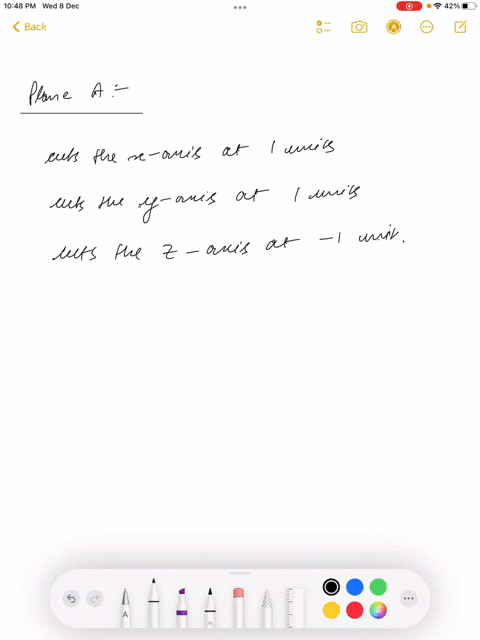 10:48 PM Wed 8 Dec
42%
Back
Plane A :-
cuts the x-axis at 1 units
cuts the y-axis at 1 units
cuts the z-axis at -1 unit.
A